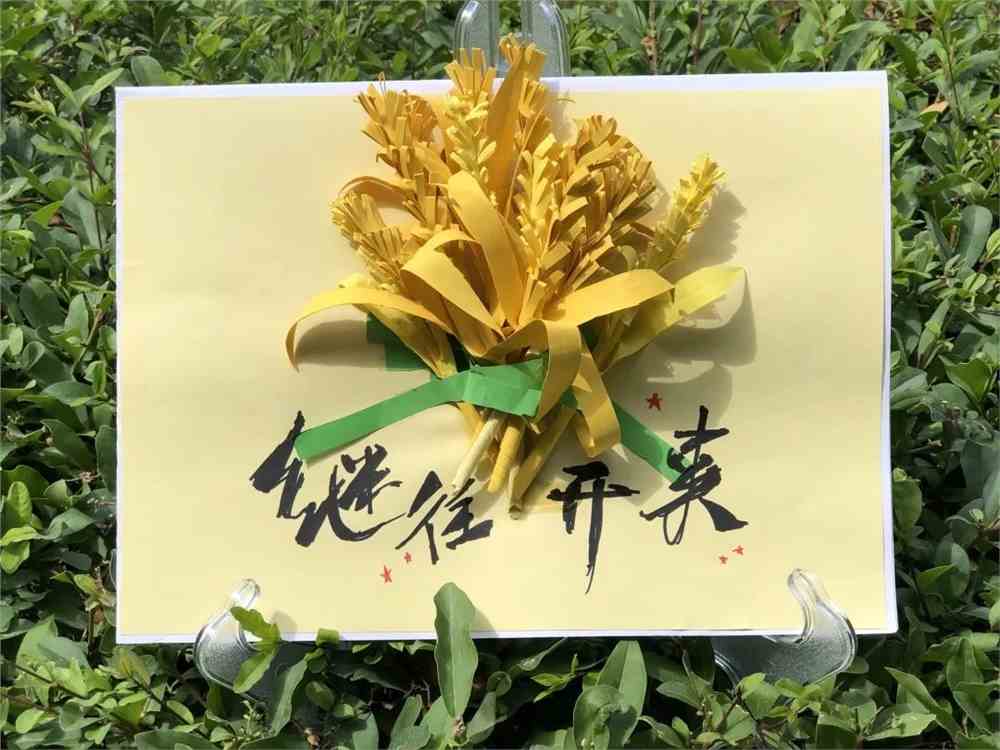 继往开来